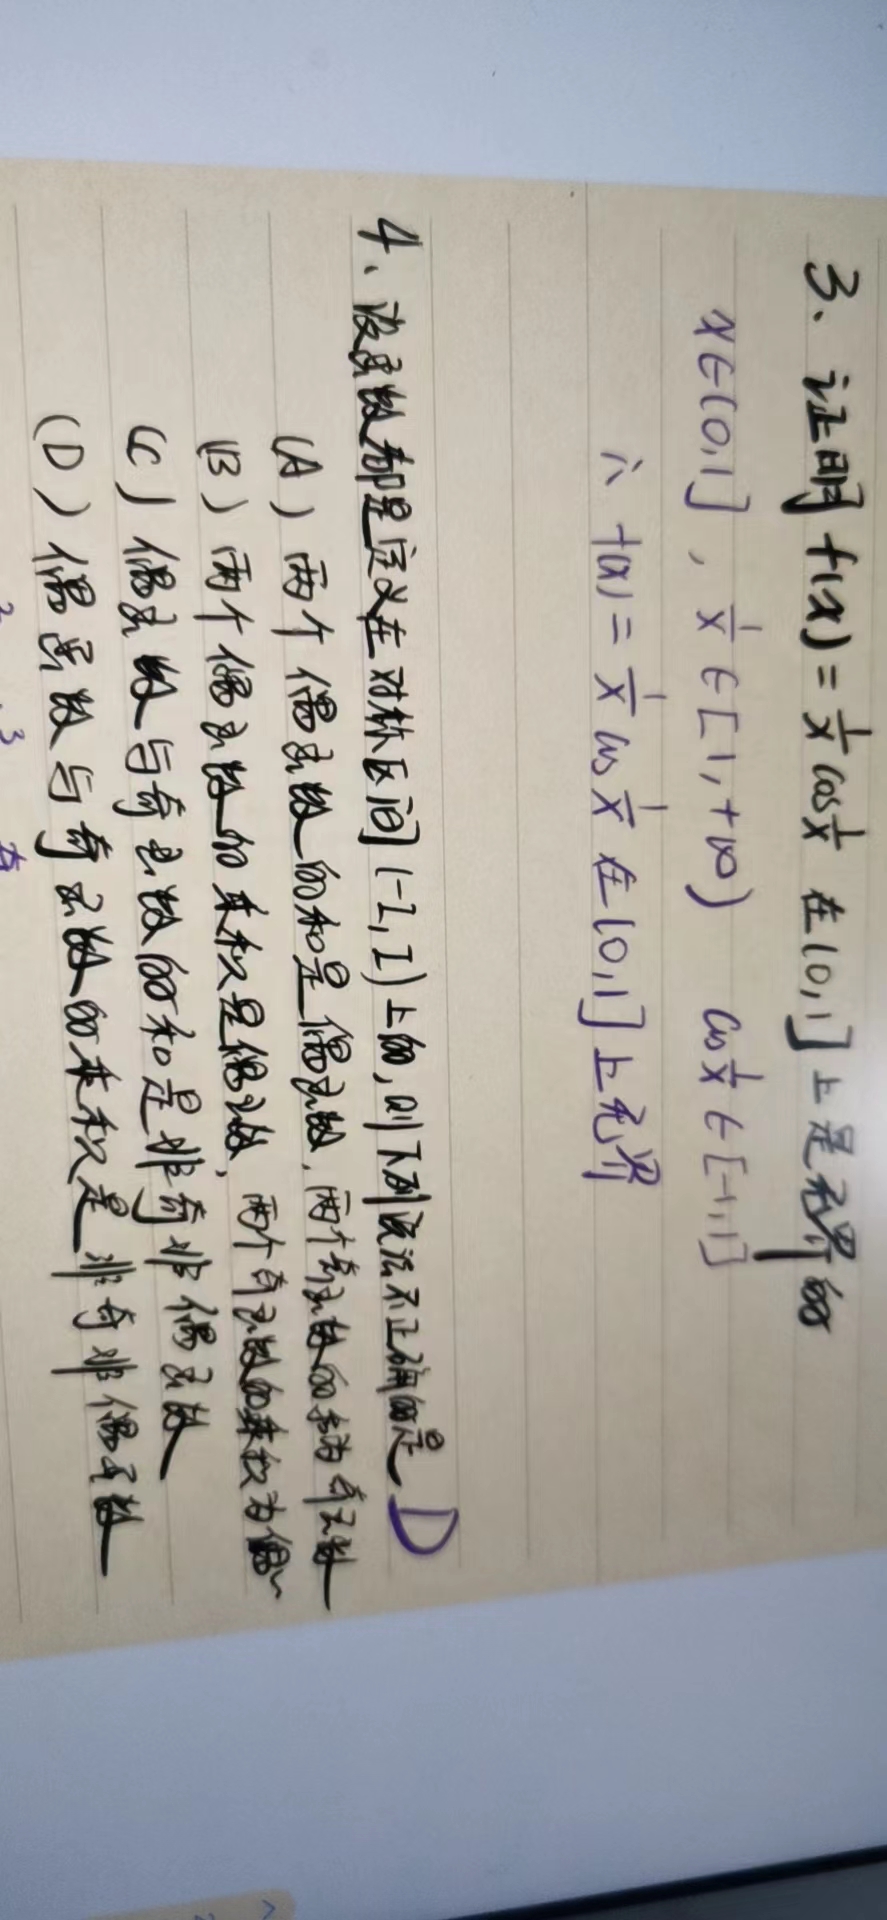 3、证明 f(x) = 1/x cos 1/x 在 (0,1] 上是无界的
x∈(0,1] , 1/x ∈ [1,+∞) cos 1/x ∈ [-1,1]
∴ f(x) = 1/x cos 1/x 在 (0,1] 上无界
4、设函数都是定义在对称区间 (-I,I) 上的,则下列说法不正确的是 D
(A) 两个偶函数的和是偶函数,两个奇函数的和为奇函数
(B) 两个偶函数的乘积是偶函数,两个奇函数的乘积为偶~
(C) 偶函数与奇函数的和是非奇非偶函数
(D) 偶函数与奇函数的乘积是非奇非偶函数